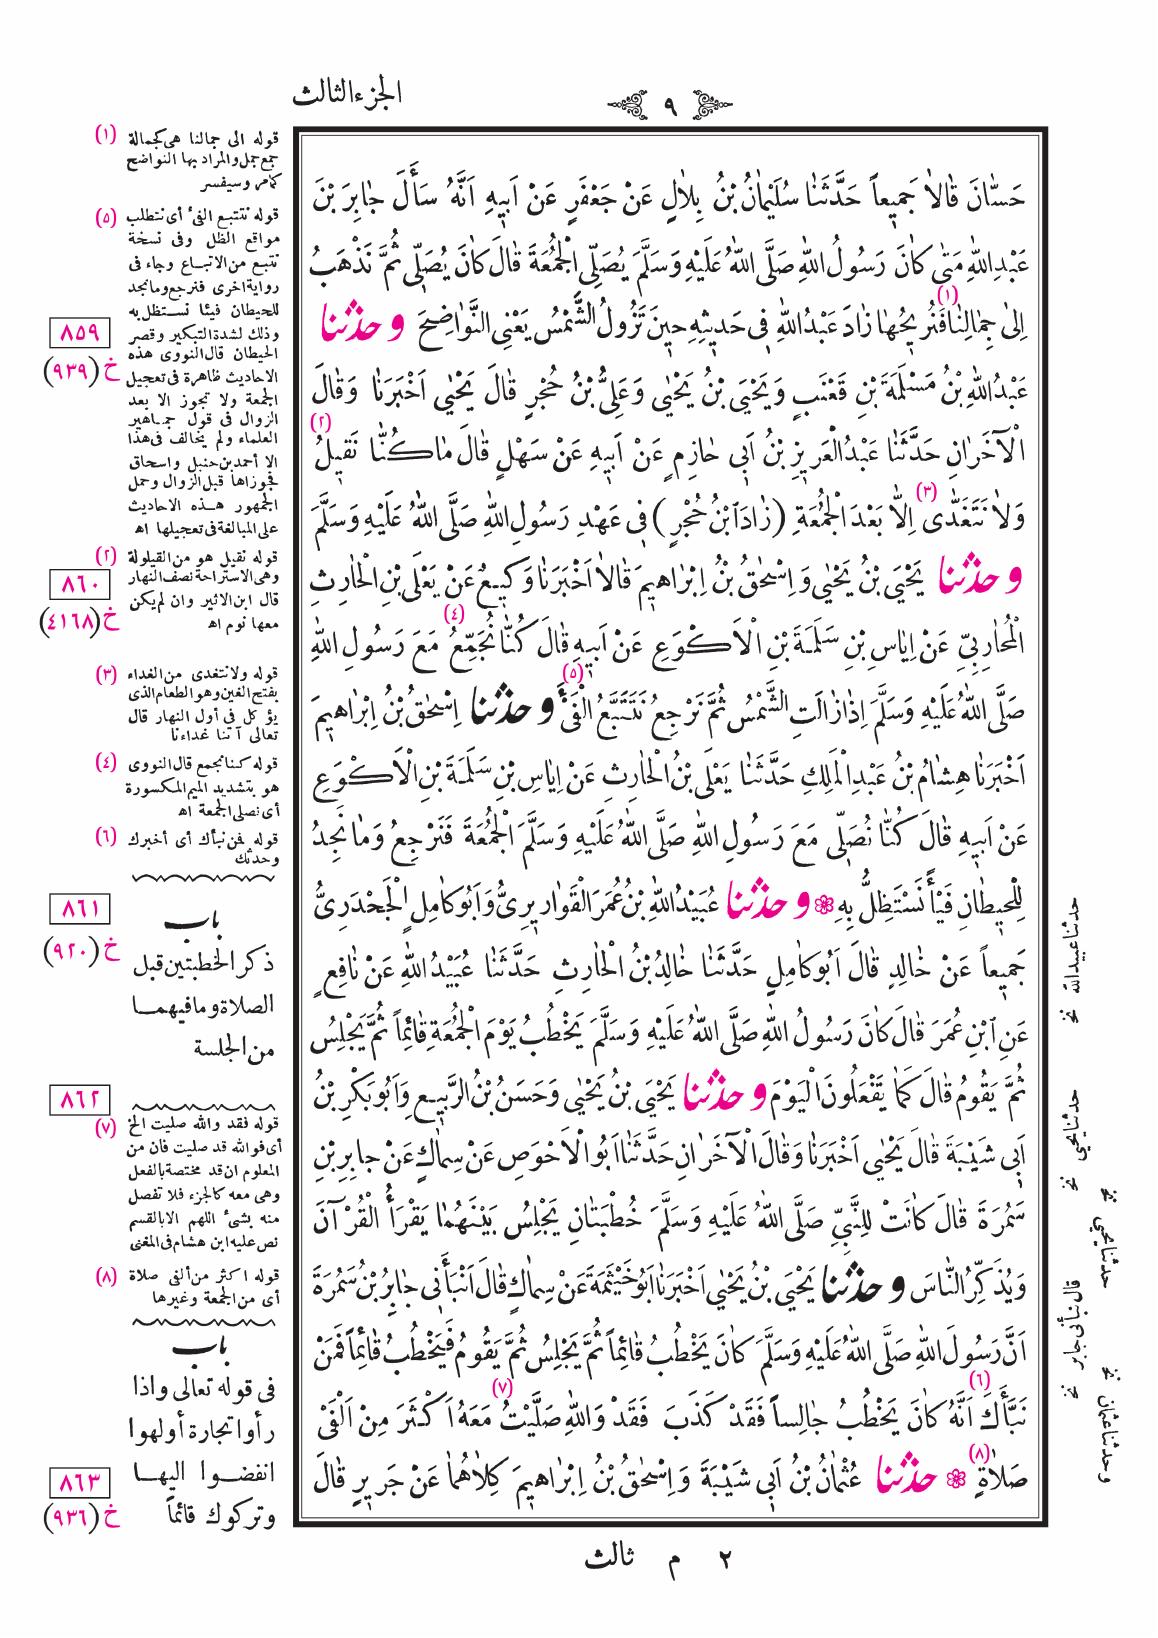 ٩
الجزء الثالث
حَسَّانَ قَالَا جَمِيعاً حَدَّثَنَا سُلَيْمَانُ بْنُ بِلَالٍ عَنْ جَعْفَرٍ عَنْ اَبِيهِ اَنَّهُ سَأَلَ جَابِرَ بْنَ
عَبْدِ اللهِ مَتٰى كَانَ رَسُولُ اللهِ صَلَّى اللهُ عَلَيْهِ وَسَلَّمَ يُصَلِّى الْجُمُعَةَ قَالَ كَانَ يُصَلِّى ثُمَّ نَذْهَبُ
اِلٰى جِمَالِنَا (١) فَنُرِيحُهَا زَادَ عَبْدُ اللهِ فِى حَدِيثِهِ حِينَ تَزُولُ الشَّمْسُ يَعْنِى النَّوَاضِحَ وحدثنا
عَبْدُ اللهِ بْنُ مَسْلَمَةَ بْنِ قَعْنَبٍ وَيَحْيَى بْنُ يَحْيٰى وَعَلِىُّ بْنُ حُجْرٍ قَالَ يَحْيٰى اَخْبَرَنَا وَقَالَ
الْآخَرَانِ حَدَّثَنَا عَبْدُ الْعَزِيزِ بْنُ اَبِى حَازِمٍ عَنْ اَبِيهِ عَنْ سَهْلٍ قَالَ مَا كُنَّا نَقِيلُ (٢)
وَلَا نَتَغَدّٰى (٣) اِلَّا بَعْدَ الْجُمُعَةِ (زَادَ ابْنُ حُجْرٍ) فِى عَهْدِ رَسُولِ اللهِ صَلَّى اللهُ عَلَيْهِ وَسَلَّمَ
وحدثنا يَحْيَى بْنُ يَحْيٰى وَاِسْحٰقُ بْنُ اِبْرَاهِيمَ قَالَا اَخْبَرَنَا وَكِيعٌ عَنْ يَعْلَى بْنِ الْحَارِثِ
الْمُحَارِبِىِّ عَنْ اِيَاسِ بْنِ سَلَمَةَ بْنِ الْاَكْوَعِ عَنْ اَبِيهِ قَالَ كُنَّا نُجَمِّعُ (٤) مَعَ رَسُولِ اللهِ
صَلَّى اللهُ عَلَيْهِ وَسَلَّمَ اِذَا زَالَتِ الشَّمْسُ ثُمَّ نَرْجِعُ نَتَتَبَّعُ الْفَىْءَ (٥) وحدثنا اِسْحٰقُ بْنُ اِبْرَاهِيمَ
اَخْبَرَنَا هِشَامُ بْنُ عَبْدِ الْمَلِكِ حَدَّثَنَا يَعْلَى بْنُ الْحَارِثِ عَنْ اِيَاسِ بْنِ سَلَمَةَ بْنِ الْاَكْوَعِ
عَنْ اَبِيهِ قَالَ كُنَّا نُصَلِّى مَعَ رَسُولِ اللهِ صَلَّى اللهُ عَلَيْهِ وَسَلَّمَ الْجُمُعَةَ فَنَرْجِعُ وَمَا نَجِدُ
لِلْحِيطَانِ فَيْأً نَسْتَظِلُّ بِهِ وحدثنا عُبَيْدُ اللهِ بْنُ عُمَرَ الْقَوَارِيرِىُّ وَاَبُو كَامِلٍ الْجَحْدَرِىُّ
جَمِيعاً عَنْ خَالِدٍ قَالَ اَبُو كَامِلٍ حَدَّثَنَا خَالِدُ بْنُ الْحَارِثِ حَدَّثَنَا عُبَيْدُ اللهِ عَنْ نَافِعٍ
عَنِ ابْنِ عُمَرَ قَالَ كَانَ رَسُولُ اللهِ صَلَّى اللهُ عَلَيْهِ وَسَلَّمَ يَخْطُبُ يَوْمَ الْجُمُعَةِ قَائِماً ثُمَّ يَجْلِسُ
ثُمَّ يَقُومُ قَالَ كَمَا يَفْعَلُونَ الْيَوْمَ وحدثنا يَحْيَى بْنُ يَحْيٰى وَحَسَنُ بْنُ الرَّبِيعِ وَاَبُو بَكْرِ بْنُ
اَبِى شَيْبَةَ قَالَ يَحْيٰى اَخْبَرَنَا وَقَالَ الْآخَرَانِ حَدَّثَنَا اَبُو الْاَحْوَصِ عَنْ سِمَاكٍ عَنْ جَابِرِ بْنِ
سَمُرَةَ قَالَ كَانَتْ لِلنَّبِىِّ صَلَّى اللهُ عَلَيْهِ وَسَلَّمَ خُطْبَتَانِ يَجْلِسُ بَيْنَهُمَا يَقْرَأُ الْقُرْآنَ
وَيُذَكِّرُ النَّاسَ وحدثنا يَحْيَى بْنُ يَحْيٰى اَخْبَرَنَا اَبُو خَيْثَمَةَ عَنْ سِمَاكٍ قَالَ اَنْبَأَنِى جَابِرُ بْنُ سَمُرَةَ
اَنَّ رَسُولَ اللهِ صَلَّى اللهُ عَلَيْهِ وَسَلَّمَ كَانَ يَخْطُبُ قَائِماً ثُمَّ يَجْلِسُ ثُمَّ يَقُومُ فَيَخْطُبُ قَائِماً فَمَنْ
نَبَّأَكَ (٦) اَنَّهُ كَانَ يَخْطُبُ جَالِساً فَقَدْ كَذَبَ فَقَدْ وَاللهِ صَلَّيْتُ (٧) مَعَهُ اَكْثَرَ مِنْ اَلْفَىْ
صَلَاةٍ (٨) حدثنا عُثْمَانُ بْنُ اَبِى شَيْبَةَ وَاِسْحٰقُ بْنُ اِبْرَاهِيمَ كِلَاهُمَا عَنْ جَرِيرٍ قَالَ
٢ م ثالث
(١) قوله الى جمالنا هى كجمالة
جمع جمل والمراد بها النواضح
كمامر وسيفسر
(٥) قوله نتتبع الفئ أى نتطلب
مواقع الظل وفى نسخة
نتبع من الاتباع وجاء فى
رواية اخرى فنرجع وما نجد
للحيطان فيئا نستظل به
وذلك لشدة التبكير وقصر
الحيطان قال النووى هذه
الاحاديث ظاهرة فى تعجيل
الجمعة ولا تجوز الا بعد
الزوال فى قول جماهير
العلماء ولم يخالف فى هذا
الا أحمد بن حنبل واسحاق
فجوزاها قبل الزوال وحمل
الجمهور هذه الاحاديث
على المبالغة فى تعجيلها اه
(٢) قوله نقيل هو من القيلولة
وهى الاستراحة نصف النهار
قال ابن الاثير وان لم يكن
معها نوم اه
(٣) قوله ولا نتغدى من الغداء
بفتح الغين وهو الطعام الذى
يؤكل فى أول النهار قال
تعالى آتنا غداءنا
(٤) قوله كنا نجمع قال النووى
هو بتشديد الميم المكسورة
أى نصلى الجمعة اه
(٦) قوله فمن نبأك أى أخبرك
وحدثك
باب
ذكر الخطبتين قبل
الصلاة وما فيهما
من الجلسة
(٧) قوله فقد والله صليت الخ
أى فوالله قد صليت فان من
المعلوم ان قد مختصة بالفعل
وهى معه كالجزء فلا تفصل
منه بشئ اللهم الا بالقسم
نص عليه ابن هشام فى المغنى
(٨) قوله اكثر من ألفى صلاة
أى من الجمعة وغيرها
باب
فى قوله تعالى واذا
رأوا تجارة أو لهوا
انفضوا اليها
وتركوك قائماً
٨٥٩
خ (٩٣٩)
٨٦٠
خ (٤١٦٨)
٨٦١
خ (٩٢٠)
٨٦٢
٨٦٣
خ (٩٣٦)
حدثنا عبيد الله نخ
حدثنا يحيى نخ
حدثنا يحيى نخ
قال نبأنى جابر نخ
وحدثنا عثمان نخ